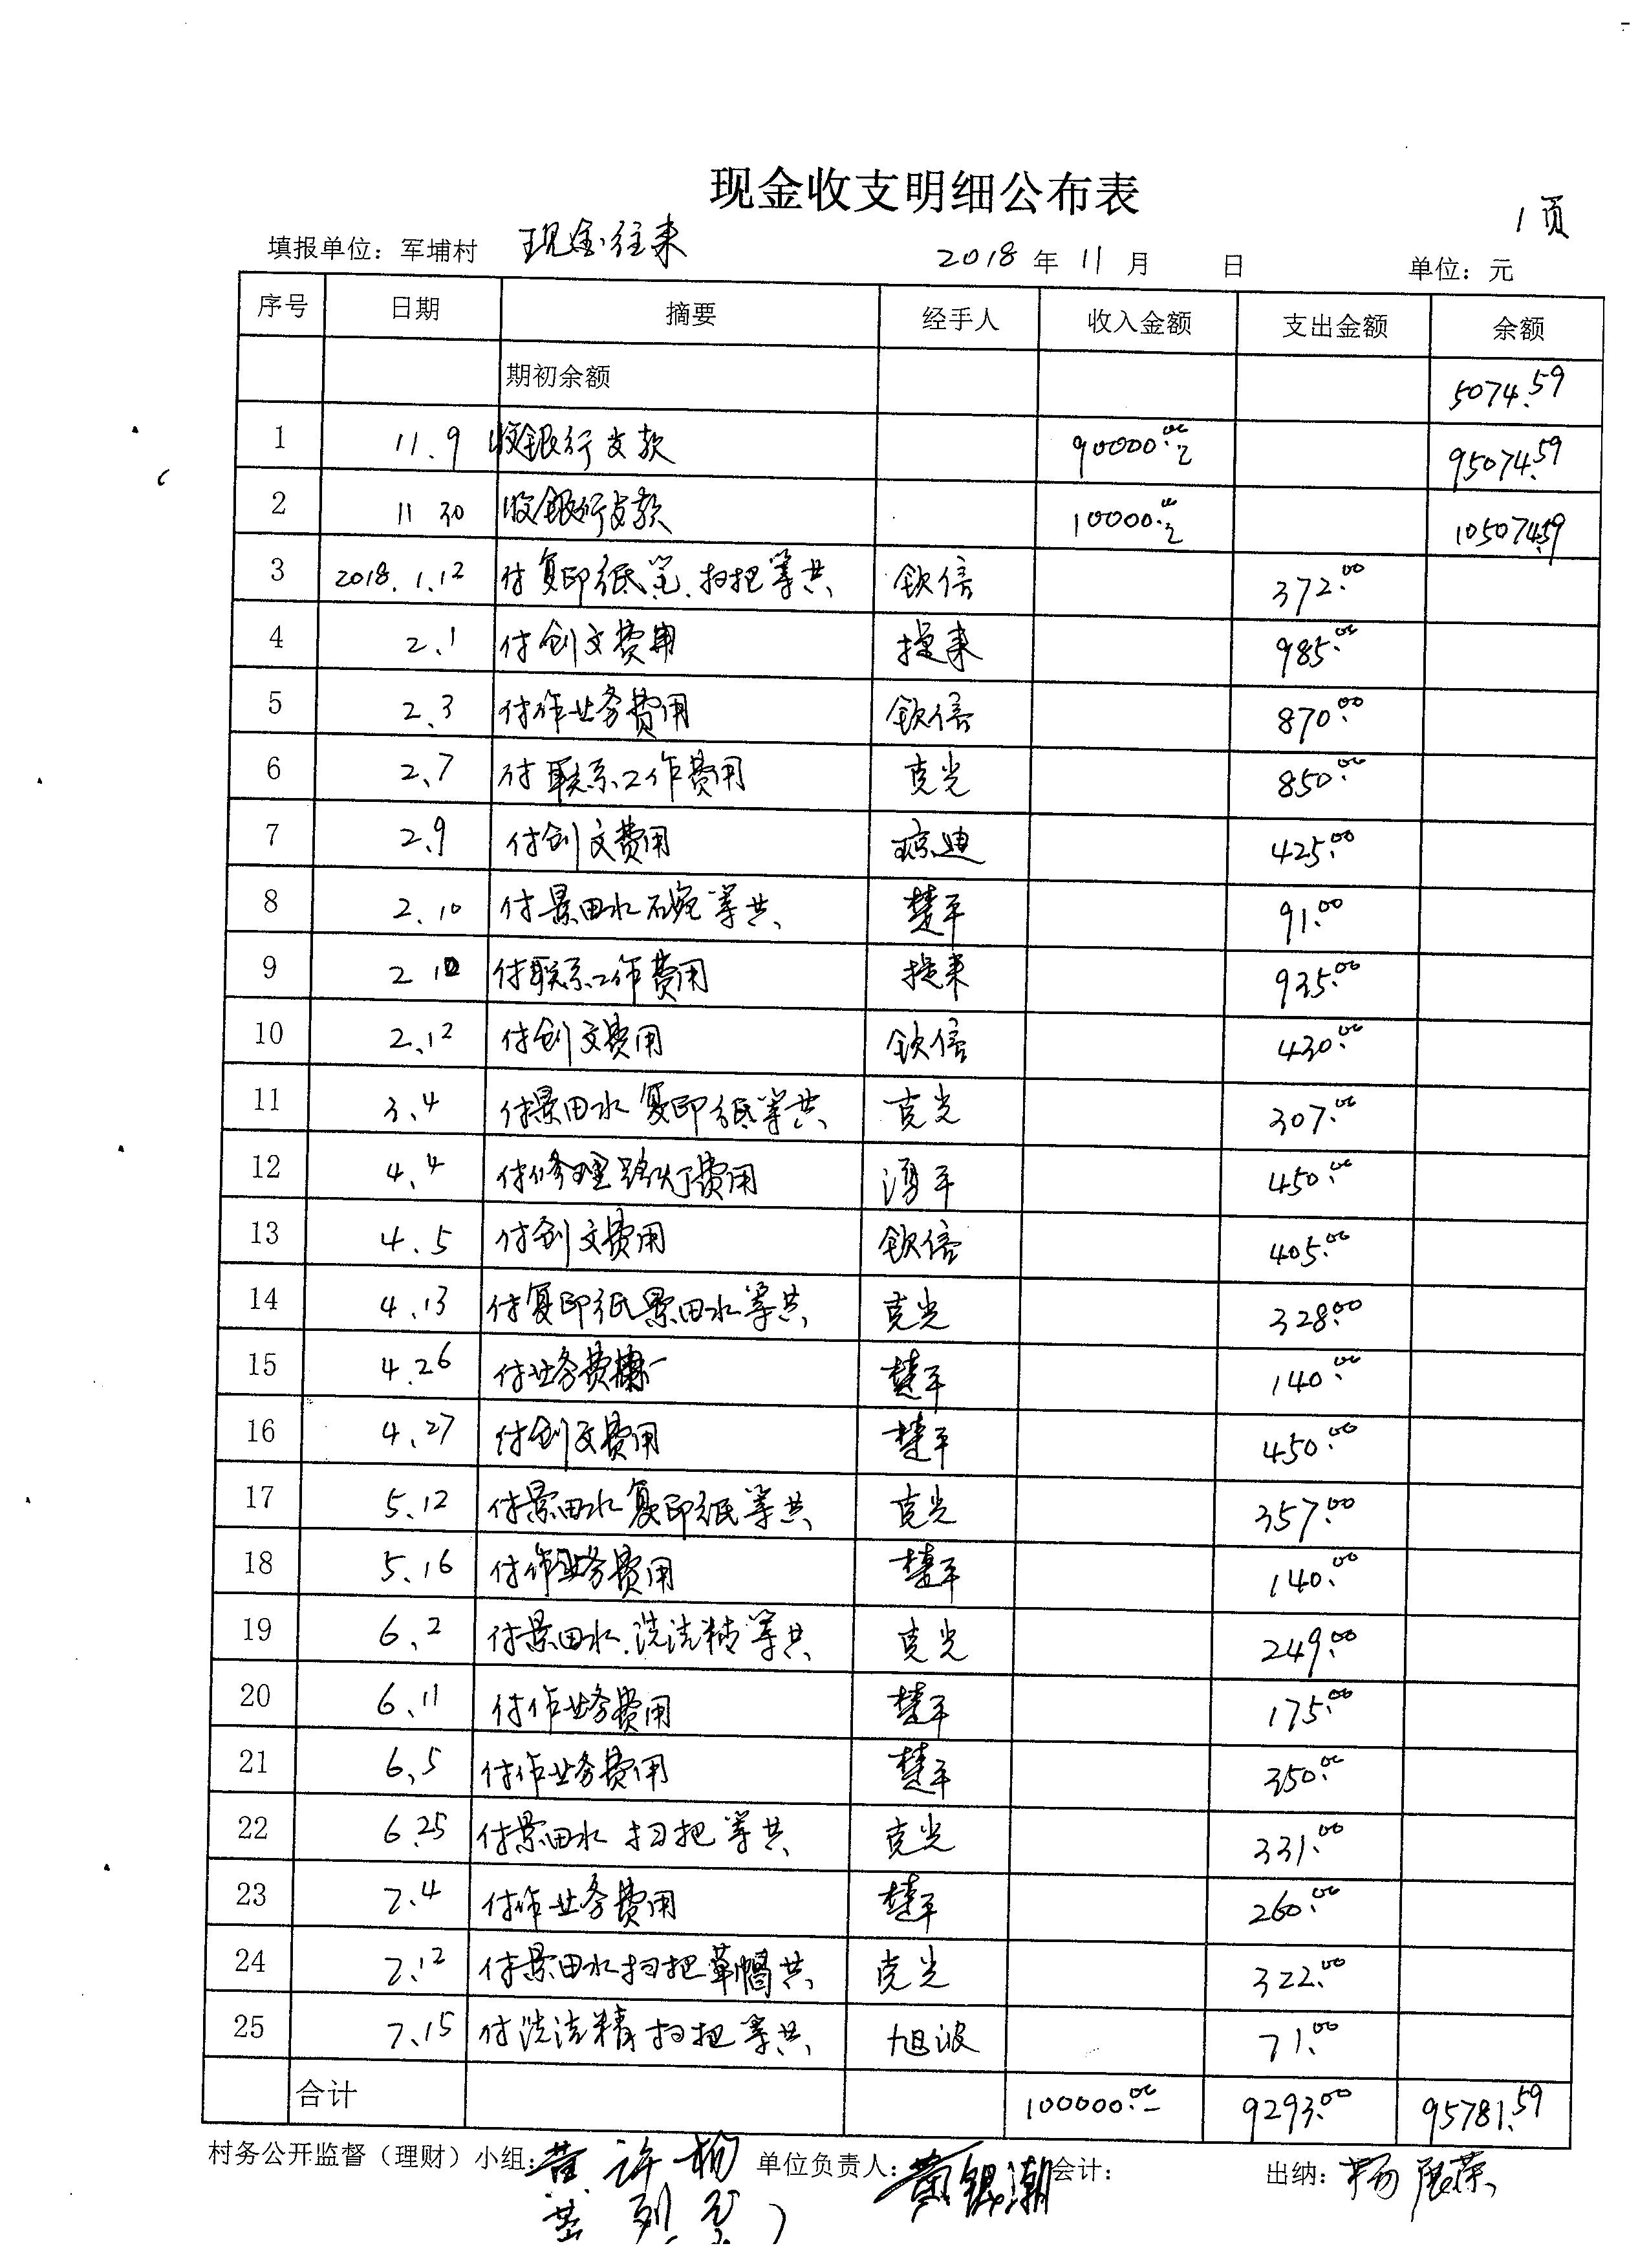 现金收支明细公布表
1页
填报单位：军埔村 现金往来 2018年11月 日 单位：元
序号 日期 摘要 经手人 收入金额 支出金额 余额
期初余额 5074.59
1 11.9 收银行支款 90000.00元 95074.59
2 11 30 收银行支款 10000.00元 105074.59
3 2018.1.12 付复印纸笔、扫把等共 钦信 372.00
4 2.1 付创文费用 提来 985.00
5 2.3 付作业务费用 钦信 870.00
6 2.7 付联系工作费用 克光 850.00
7 2.9 付创文费用 琼迪 425.00
8 2.10 付景田水碗等共 楚平 91.00
9 2 10 付联系工作费用 提来 935.00
10 2.12 付创文费用 钦信 430.00
11 3.4 付景田水复印纸等共 克光 307.00
12 4.4 付修理路灯费用 湧平 450.00
13 4.5 付创文费用 钦信 405.00
14 4.13 付复印纸景田水等共 克光 328.00
15 4.26 付业务费 楚平 140.00
16 4.27 付创文费用 楚平 450.00
17 5.12 付景田水复印纸等共 克光 357.00
18 5.16 付作业务费用 楚平 140.00
19 6.2 付景田水.洗洁精等共 克光 249.00
20 6.11 付作业务费用 楚平 175.00
21 6.5 付作业务费用 楚平 350.00
22 6.25 付景田水 扫把等共 克光 331.00
23 7.4 付作业务费用 楚平 260.00
24 7.12 付景田水扫把草帽共 克光 322.00
25 7.15 付洗洁精扫把等共 旭波 71.00
合计 100000.00 9293.00 95781.59
村务公开监督（理财）小组：黄 许 杨 单位负责人：黄锡潮 会计： 出纳：杨展荣